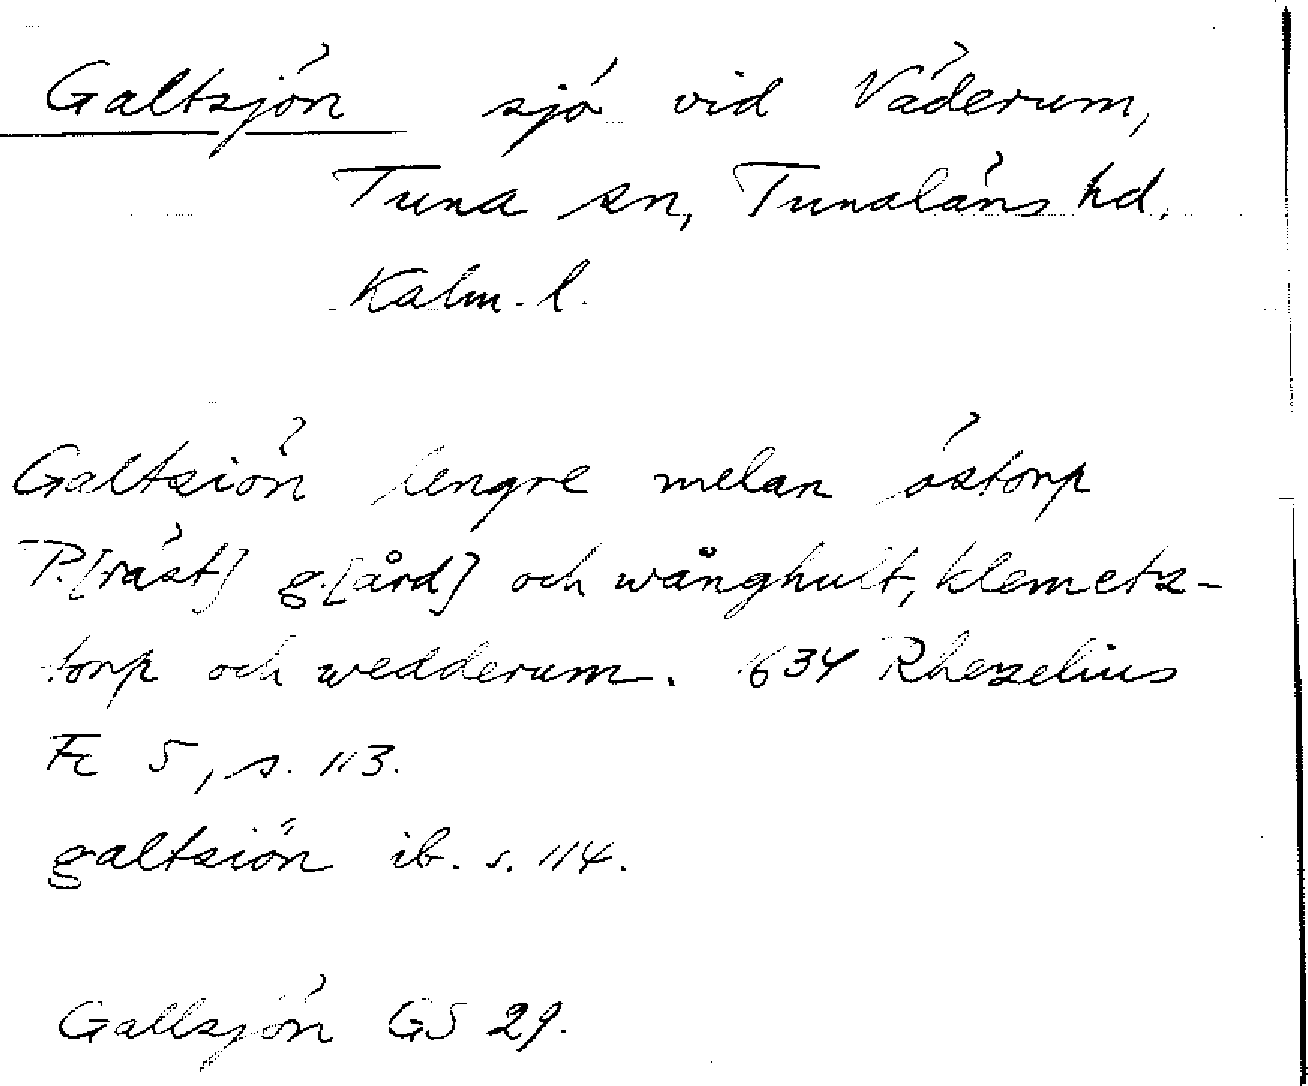 Galtsjön sjö vid Väderum,
Tuna sn, Tunaläns hd.
Kalm. l.
Galtsiön lengre melan östorp
P.[räst] g.[ård] och wånghult, klemets-
torp och wedderum. 1634 Rhezelius
Fc 5, s. 113.
galtsiön ib. s. 114.
Gallsjön GS 29.